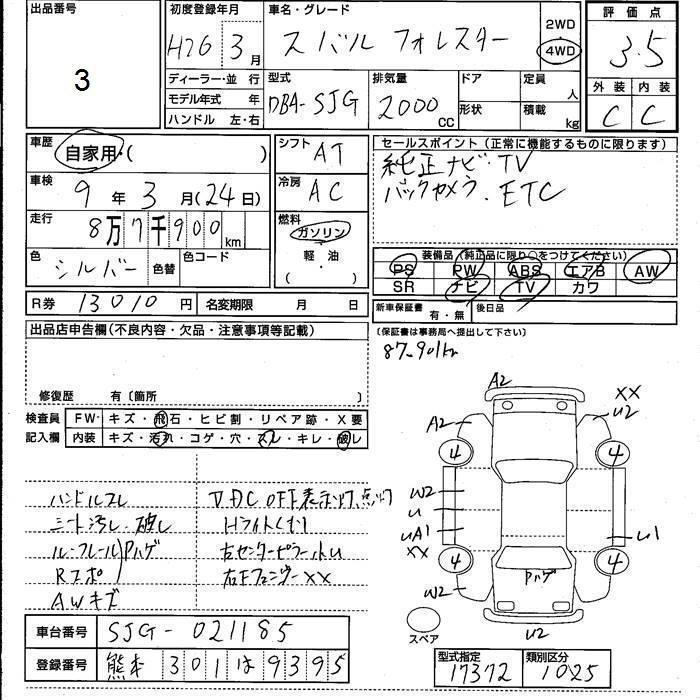 出品番号
3
初度登録年月
H26 3月
車名・グレード
スバル フォレスター
2WD
4WD
評価点
3.5
ディーラー・並 行
モデル年式 年
ハンドル 左・右
型式
DBA-SJG
排気量
2000 CC
ドア
形状
定員 人
積載 kg
外装 内装
C C
車歴 自家用・( )
車検 9年3月(24日)
走行 8万7千900km
色 シルバー 色替 色コード
シフト AT
冷房 AC
燃料
ガソリン
軽・油
( )
セールスポイント(正常に機能するものに限ります)
純正ナビ・TV
バックカメラ. ETC
装備品(純正品に限り○をつけてください)
PS PW ABS エアB AW
SR ナビ TV カワ
R券 13010円 名変期限 月 日
新車保証書 有・無 後日品
(保証書は事務局へ提出して下さい)
出品店申告欄(不良内容・欠品・注意事項等記載)
87.901km
修復歴 有〔箇所 〕
検査員 FW- キズ・飛石・ヒビ割・リペア跡・X要
記入欄 内装 キズ・汚れ・コゲ・穴・スレ・キレ・破レ
ハンドルスレ
シート汚レ・破レ
ル-フレール
Rスポ
Pハゲ
AWキズ
Hライトくもり
右Fフェンダー××
A2
A2
××
U2
4 4
W2
U
UA1
××
U1
4 4
Pハゲ
W2
U2
スペア
車台番号 SJG-021185
登録番号 熊本 301 は 9395
型式指定 17372
類別区分 1025